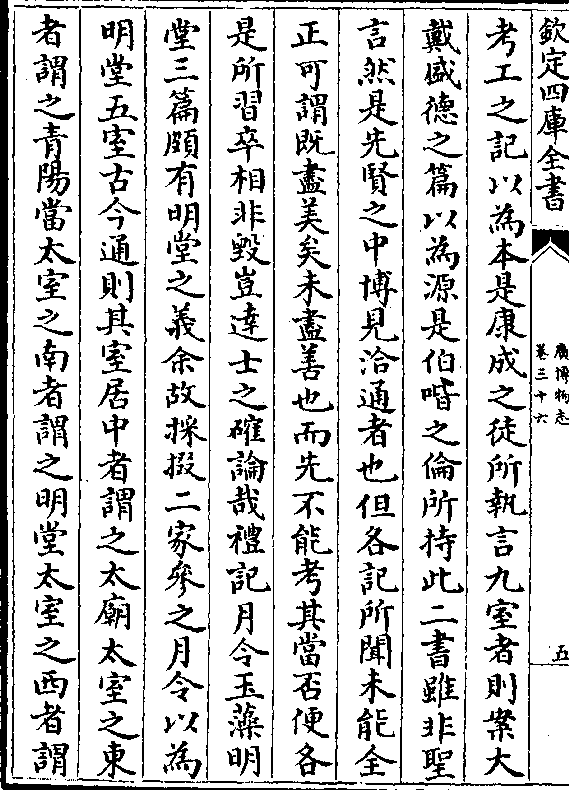 欽定四庫全書
廣博物志
卷三十六
五
考工之記以為本是康成之徒所執言九室者則案大
戴盛德之篇以為源是伯喈之倫所持此二書雖非聖
言然是先賢之中博見洽通者也但各記所聞未能全
正可謂既盡美矣未盡善也而先不能考其當否便各
是所習卒相非毀豈達士之確論哉禮記月令玉藻明
堂三篇頗有明堂之義余故採掇二家參之月令以為
明堂五室古今通則其室居中者謂之太廟太室之東
者謂之青陽當太室之南者謂之明堂太室之西者謂